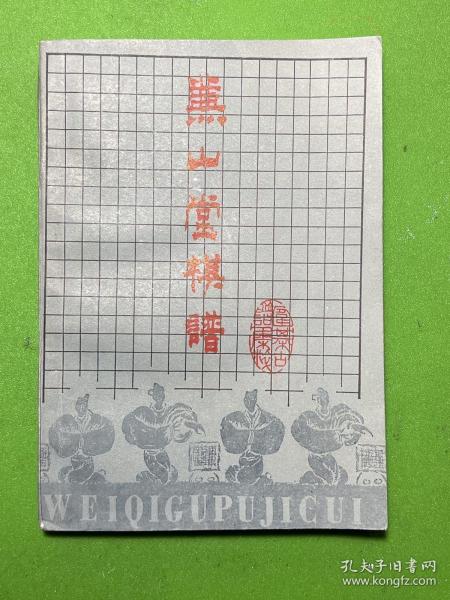 兼山堂棋譜
圍棋古
譜集粹
WEIQIGUPUJICUI
孔夫子旧书网
www.kongfz.com